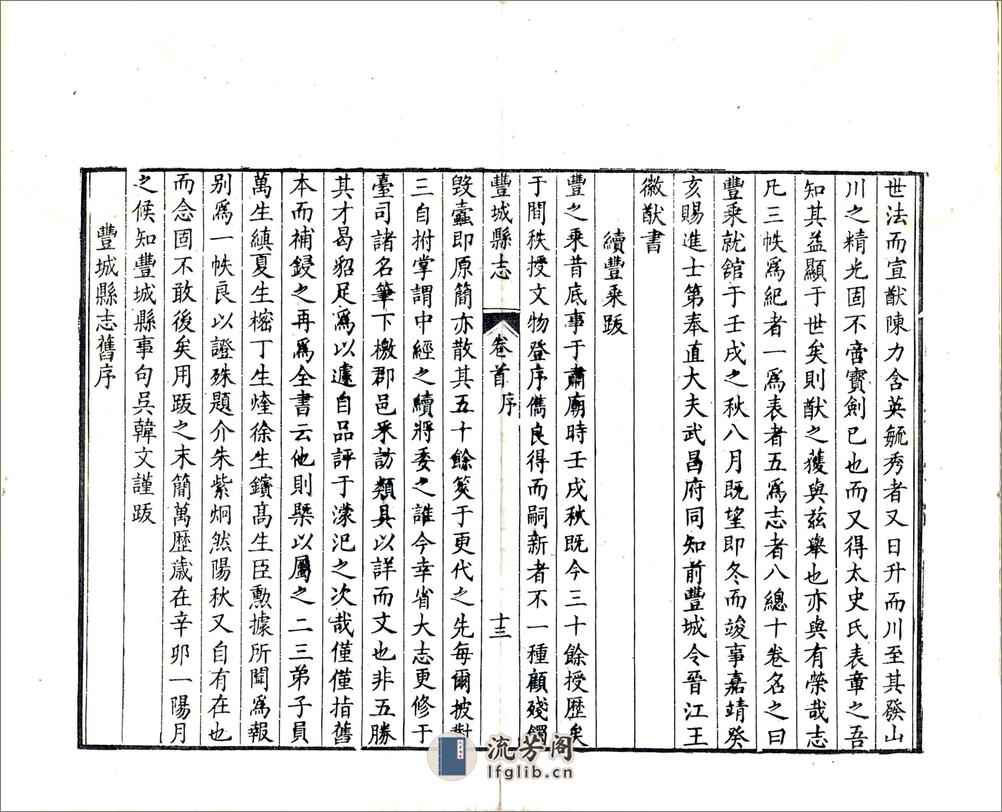 世法而宣猷陳力含英毓秀者又日升而川至其發山
川之精光固不啻寶劍已也而又得太史氏表章之吾
知其益顯于世矣則猷之獲與兹舉也亦與有榮哉志
凡三帙爲紀者一爲表者五爲志者八總十卷名之曰
豐乘就舘于壬戌之秋八月既望即冬而竣事嘉靖癸
亥賜進士第奉直大夫武昌府同知前豐城令晉江王
徽猷書
續豐乘跋
豐之乘昔底事于肅廟時壬戌秋既今三十餘授歷矣
于間秩授文物登序儁良得而嗣新者不一種顧殘鐫
豐城縣志
卷首
序
十三
毀蠹即原簡亦散其五十餘筴于更代之先每爾披對
三自拊掌謂中經之續將委之誰今幸省大志更修于
臺司諸名筆下檄郡邑釆訪類具以詳而文也非五勝
其才曷貂足爲以遽自品評于濛汜之次哉僅僅指舊
本而補鋟之再爲全書云他則槩以屬之二三弟子員
萬生縝夏生樒丁生烇徐生鑛髙生臣勲據所聞爲報
别爲一帙良以證殊題介朱紫炯然陽秋又自有在也
而念固不敢後矣用跋之末簡萬歴歲在辛卯一陽月
之候知豐城縣事句吳韓文謹跋
豐城縣志舊序
流芳阁
lfglib.cn